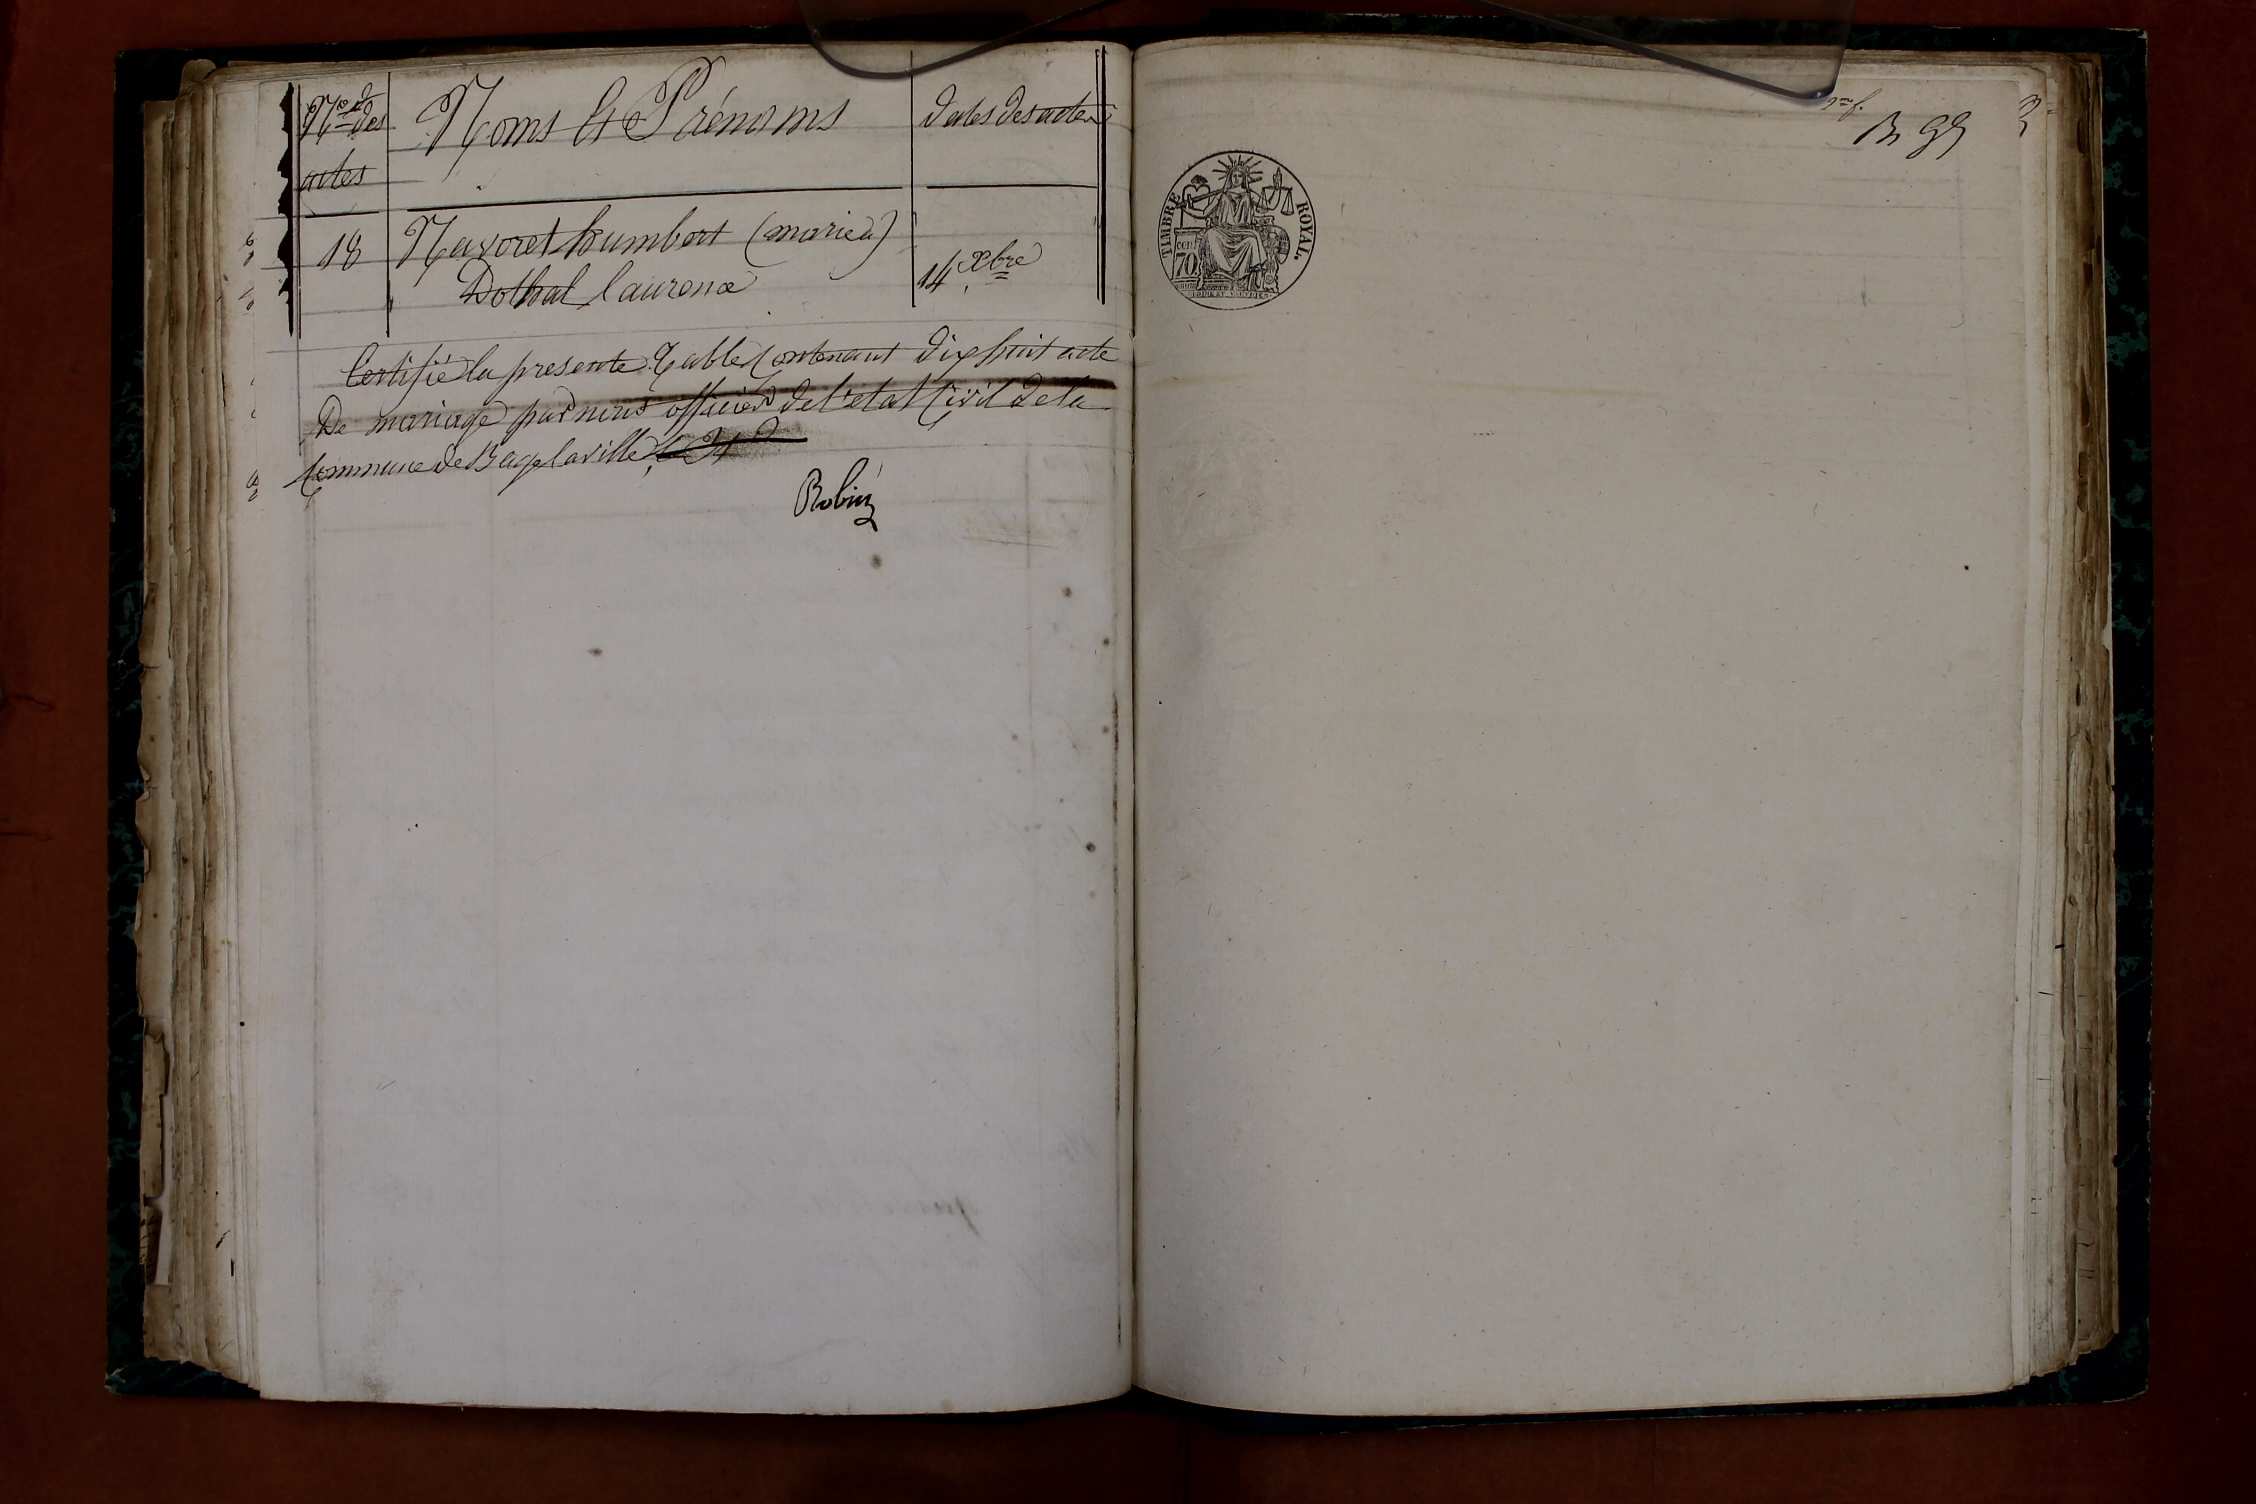 Nos des
actes
Noms et Prénoms
dates des actes
18
Navoret humbert (marie à)
Dothal laurence
14 xbre
Certifié la presente Table Contenant dix huit acte
De mariage par nous officier de l'etat Civil de la
Commune de Bagelaville
Robin
TIMBRE ROYAL.
70